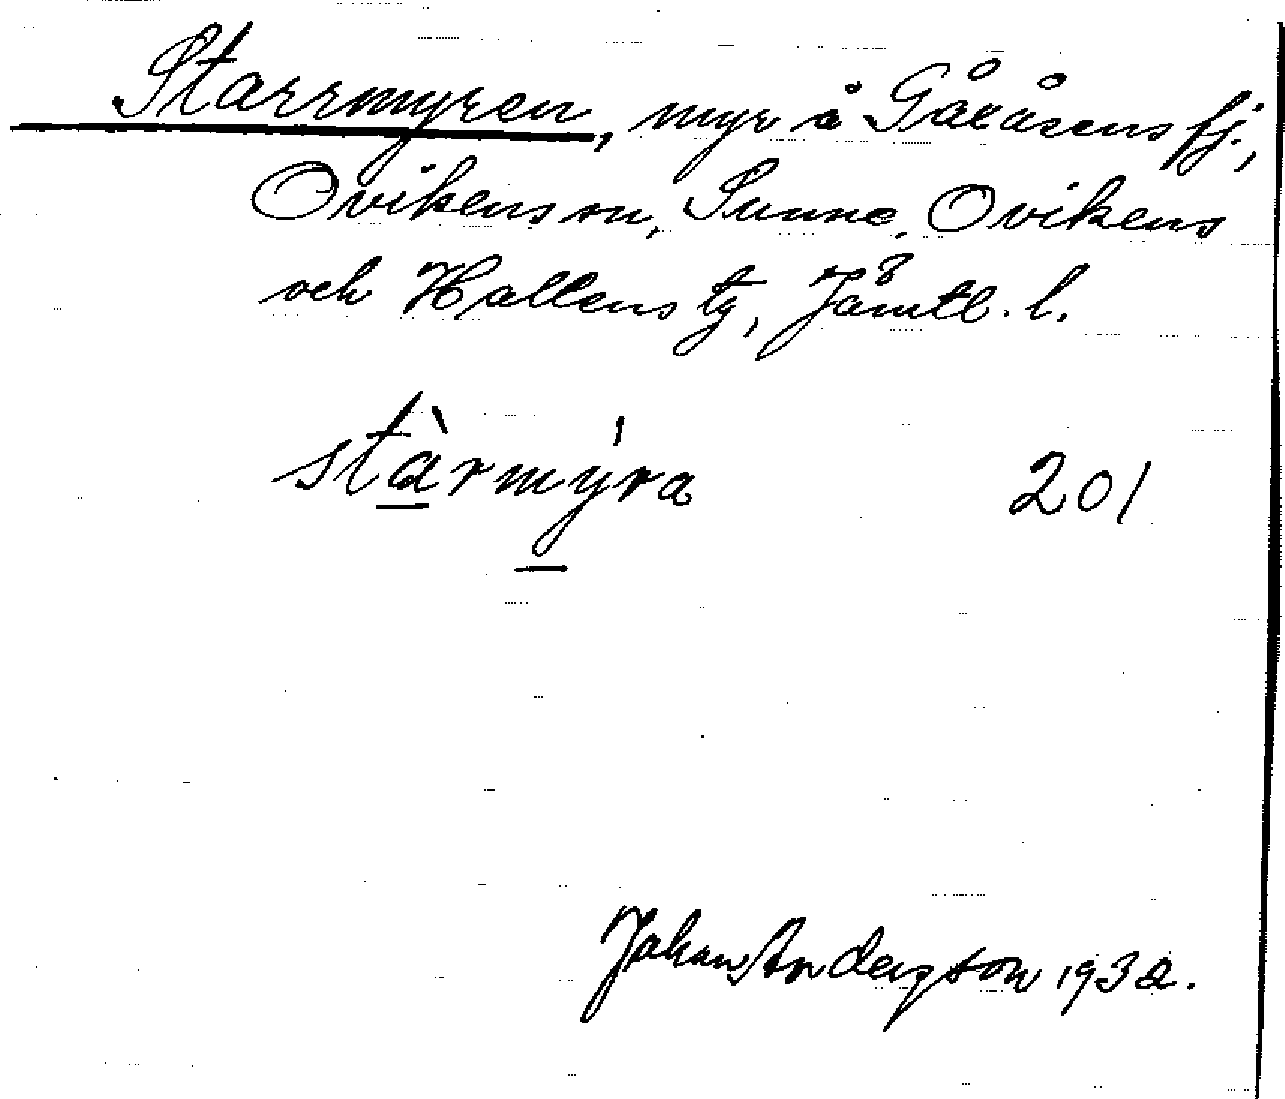 Starrmyren, myr å Gåxåsens fj.,
Ovikens sn, Sunne, Ovikens
och Hallens tg, Jämtl. l.
stàrmýra 201
Johan Anderzson 1932.